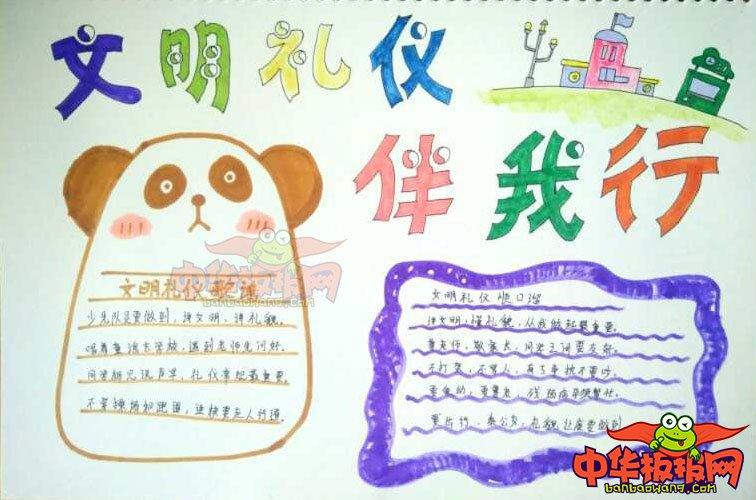 文明礼仪
伴我行
文明礼仪歌谣
少先队员要做到，讲文明、讲礼貌。
唱着童谣去学校，遇到老师先问好。
同学相见说声早，礼仪常规最重要。
不穿操场和跑道，进校要走人行道。
中华板报网
banbaowang.com
文明礼仪顺口溜
讲文明，懂礼貌，从我做起最重要。
尊老师，敬家长，同学之间要友好。
不打架，不骂人，有了矛盾不要吵。
要爱幼，要尊老，
要出行，乘公交，礼貌让座要做到
中华板报网
banbaowang.com